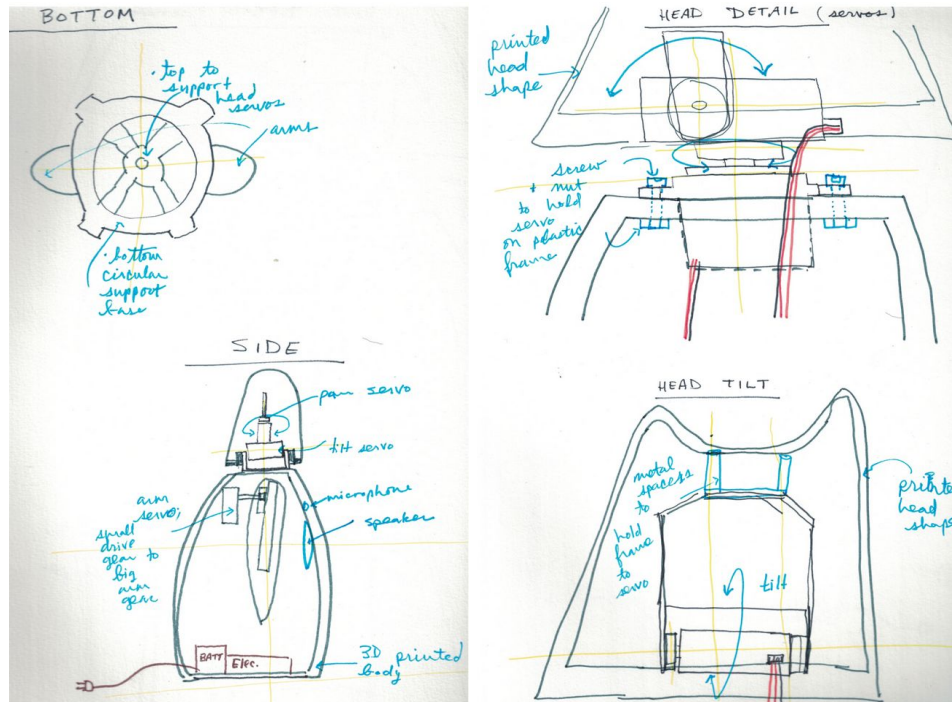 BOTTOM
· top to
support
head
servos
arms
· bottom
circular
support
base
SIDE
pan servo
tilt servo
arm
servo;
small
drive
gear to
big
arm
gear
microphone
speaker
BATT
Elec.
3D printed
body
HEAD DETAIL (servos)
printed
head
shape
screw
+ nut
to hold
servo
on plastic
frame
HEAD TILT
metal
spacess
to
hold
frame
to
servo
tilt
printed
head
shape